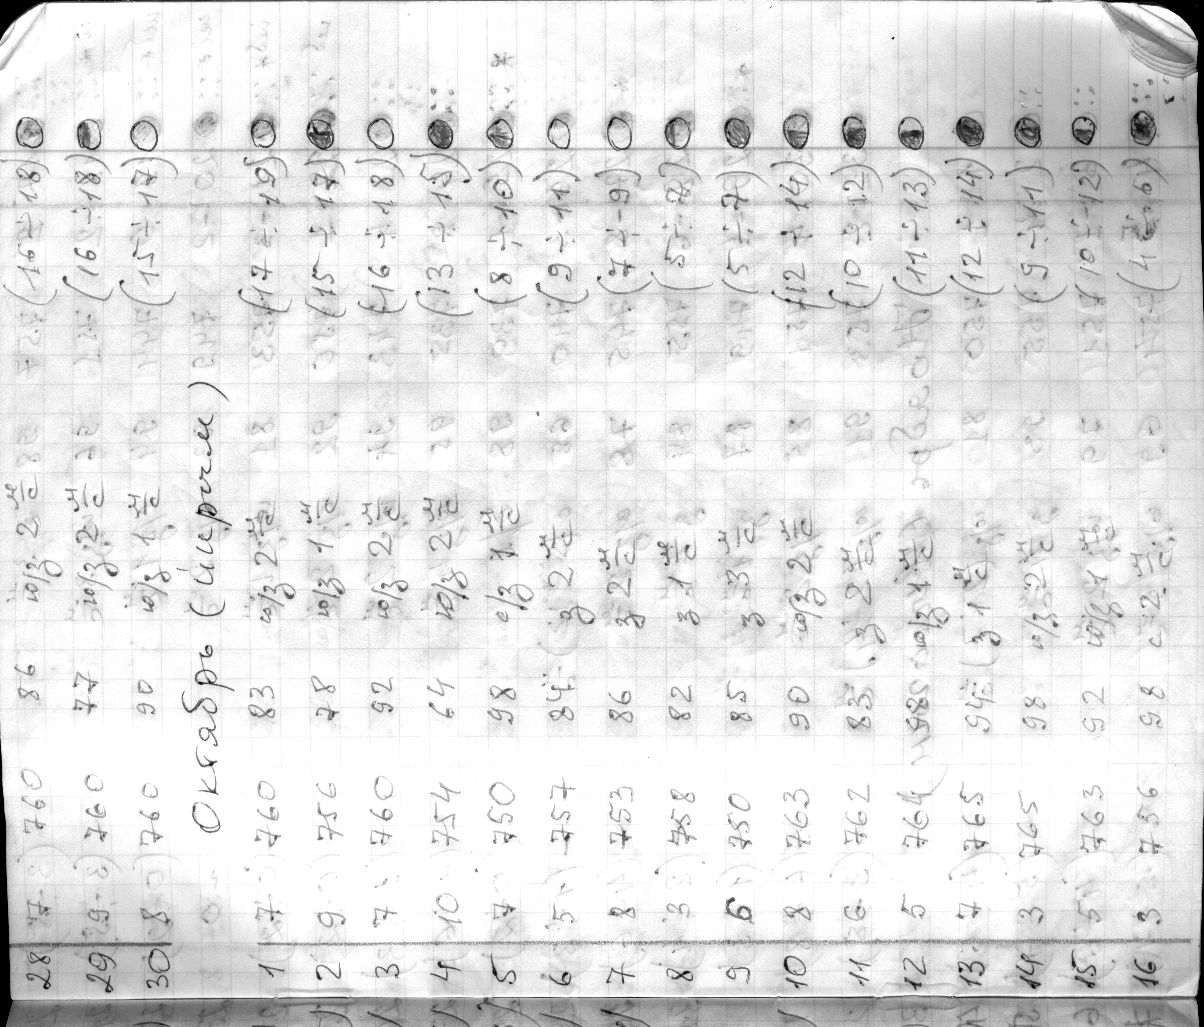 28 7 760 86 ю/з 2 м/с (16 ÷ 18)
29 9 760 77 ю/з 2 м/с (16 ÷ 18)
30 8 760 90 ю/з 1 м/с (15 ÷ 17)
Октябрь
1 7 760 83 ю/з 2 м/с (17 ÷ 19)
2 9 756 78 ю/з 1 м/с (15 ÷ 17)
3 7 760 92 ю/з 2 м/с (16 ÷ 18)
4 10 754 64 ю/з 2 м/с (13 ÷ 15)
5 7 750 98 ю/з 1 м/с (8 ÷ 10)
6 5 757 84 з 2 м/с (9 ÷ 11)
7 8 753 86 з 2 м/с (7 ÷ 9)
8 3 758 82 з 1 м/с (5 ÷ 7)
9 6 750 85 з 3 м/с (5 ÷ 7)
10 8 763 90 ю/з 2 м/с (12 ÷ 14)
11 6 762 83 з 2 м/с (10 ÷ 12)
12 5 764 98 ю/з 1 м/с (11 ÷ 13)
13 7 765 94 з 1 м/с (12 ÷ 14)
14 3 765 98 ю/з 2 м/с (9 ÷ 11)
15 5 763 92 ю/з 1 м/с (10 ÷ 12)
16 3 756 98 с 2 м/с (4 ÷ 6)